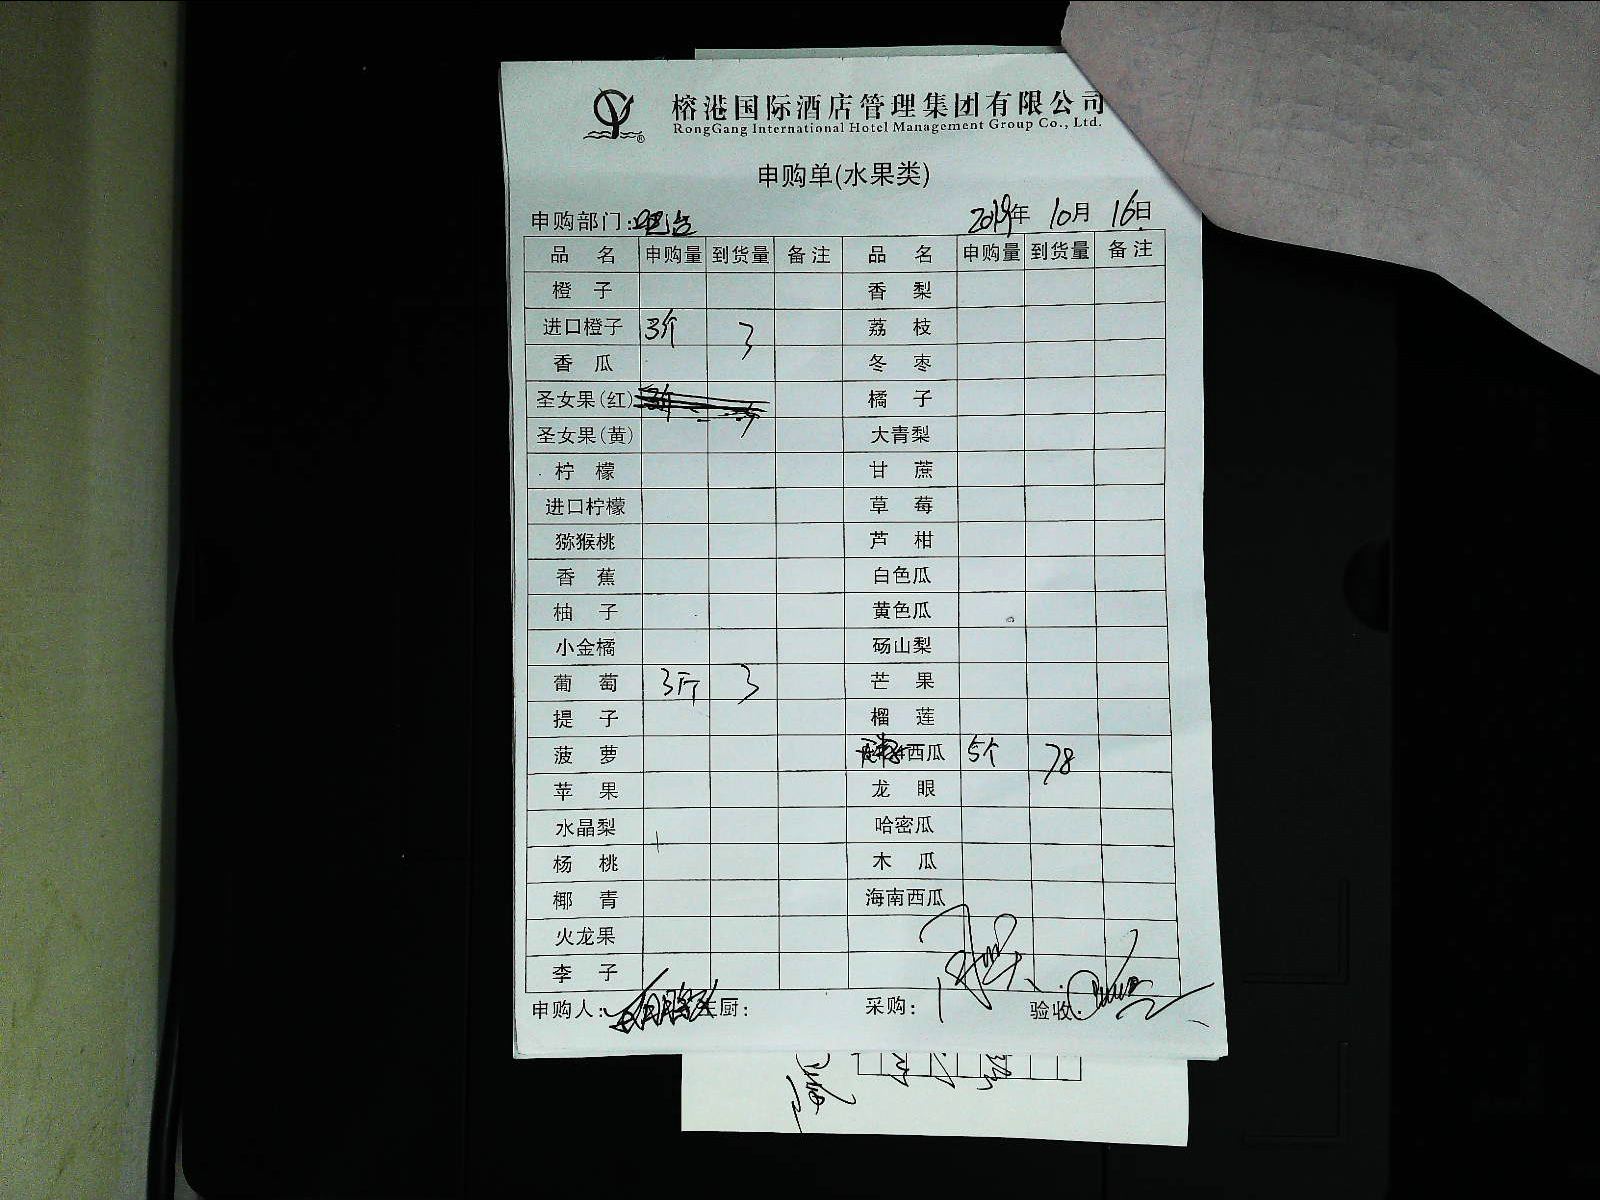 榕港国际酒店管理集团有限公司
RongGang International Hotel Management Group Co., Ltd.
申购单(水果类)
申购部门:吧台 2019年 10月 16日
品 名 申购量 到货量 备注 品 名 申购量 到货量 备注
橙 子 香 梨
进口橙子 3个 3 荔 枝
香 瓜 冬 枣
圣女果(红) 橘 子
圣女果(黄) 大青梨
柠 檬 甘 蔗
进口柠檬 草 莓
猕猴桃 芦 柑
香 蕉 白色瓜
柚 子 黄色瓜
小金橘 砀山梨
葡 萄 3斤 3 芒 果
提 子 榴 莲
菠 萝 西瓜 5个 78
苹 果 龙 眼
水晶梨 哈密瓜
杨 桃 木 瓜
椰 青 海南西瓜
火龙果
李 子
申购人: 主厨: 采购: 验收: